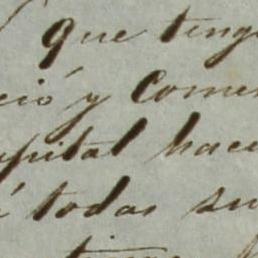 que teng
ció y Come
apital hace
á todas su